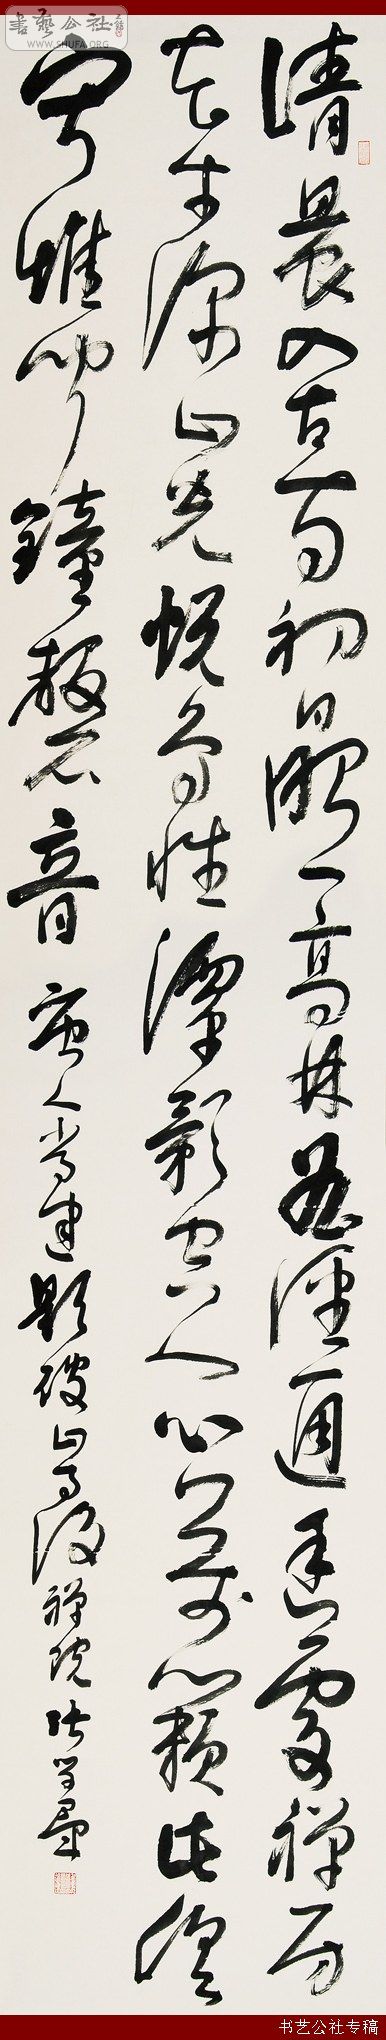 書藝公社
WWW.SHUFA.ORG
清晨入古寺初日照高林曲徑通幽處禅房
花木深山光悅鳥性潭影空人心萬籟此俱
寂惟聞鐘磬音 唐人常建題破山寺後禅院 張
书艺公社专稿